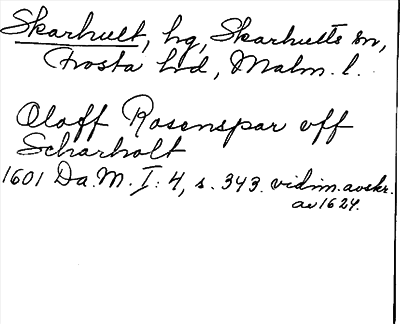 Skarhult, hg, Skarhults sn,
Frosta hd, Malm. l.
Oloff Rosenspar off
Scharholt
1601 Da. M. I: 4, s. 343. vidim. avskr.
av 1624.